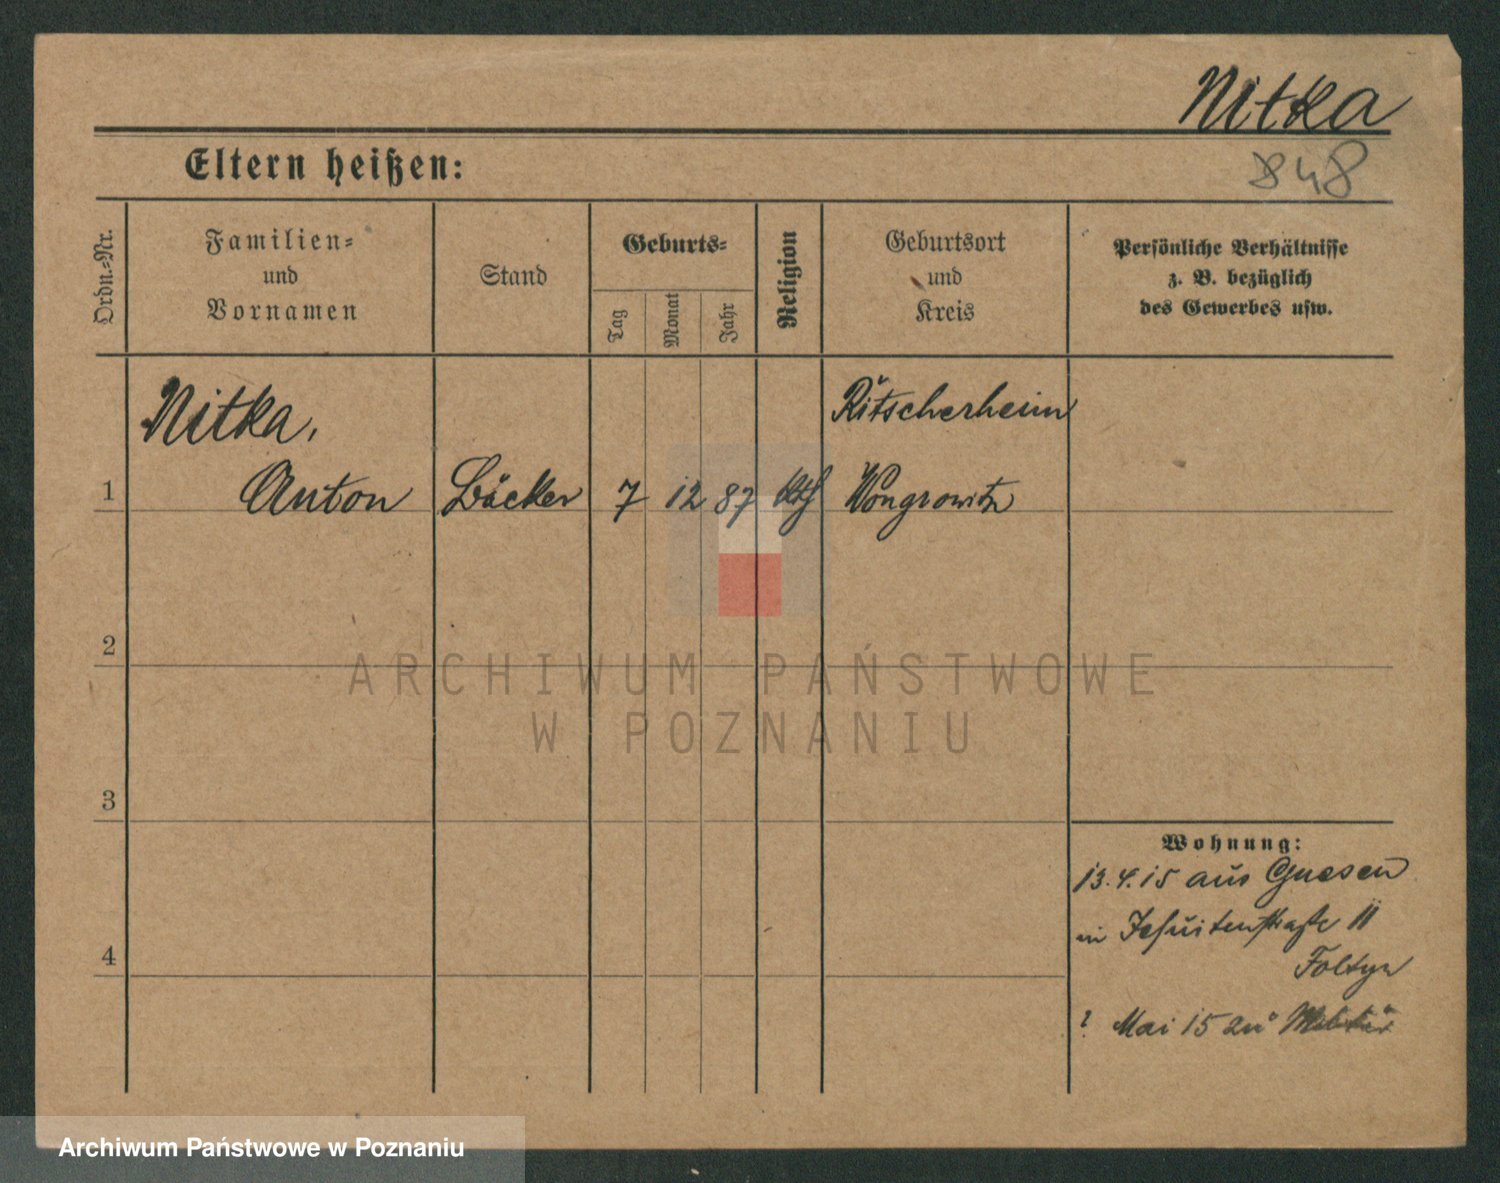 Nitka
848
Eltern heißen:
Ordn.-Nr.
Familien-
und
Vornamen
Stand
Geburts-
Tag
Monat
Jahr
Religion
Geburtsort
und
Kreis
Persönliche Verhältnisse
z. B. bezüglich
des Gewerbes usw.
Nitka,
Ritscherheim
1
Anton
Bäcker
7
12
87
kth
Wongrowitz
2
ARCHIWUM PAŃSTWOWE
W POZNANIU
3
Wohnung:
13.4.15 aus Gnesen
in Jesuitenstraße 11
4
Foltyn
? Mai 15 zum Militär
Archiwum Państwowe w Poznaniu